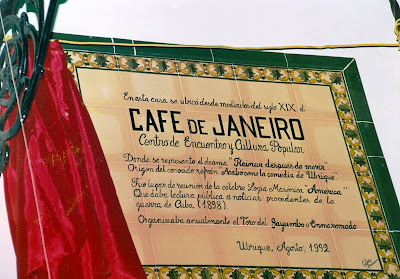 En esta casa se ubicó desde mediados del siglo XIX el
CAFE DE JANEIRO
Centro de Encuentro y Cultura Popular
Donde se representó el drama "Reinar después de morir"
Origen del conocido refrán Acabó como la comedia de Ubrique".
Fue lugar de reunión de la celebre Logia Masónica "America"
Que daba lectura pública a noticias procedentes de la
guerra de Cuba (1898).
Organizaba anualmente el Toro del Gayumbo o Enmaromado
Ubrique, Agosto, 1992